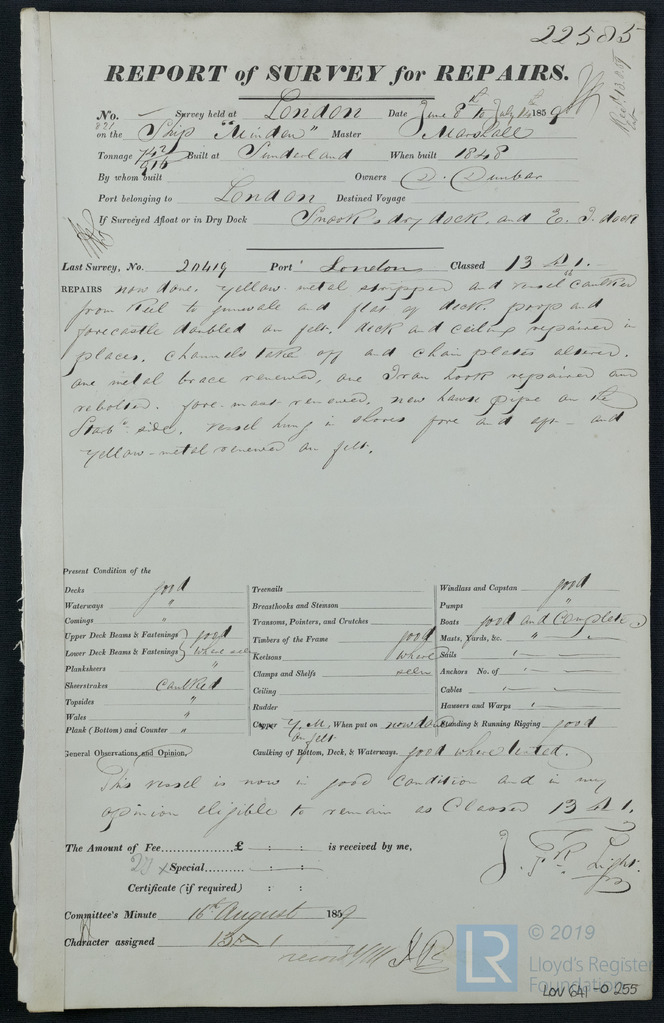 22585
REPORT of SURVEY for REPAIRS.
No. — Survey held at London Date June 8th to July 14th 1859
821 on the Ship "Minden" Master Marshall
Tonnage 742 916 Built at Sunderland When built 1848
By whom built Owners D. Dunbar
Port belonging to London Destined Voyage
If Surveyed Afloat or in Dry Dock Snook's dry dock. and E. I. dock
Last Survey, No. 20419 Port London Classed 13 A 1.
REPAIRS now done. Yellow-metal stripped and vessel caulked
from keel to gunwale and flat of deck. poop and
forecastle doubled on felt. deck and ceiling repaired in
places. Channels take off and chain plates altered.
one metal brace renewed, one Iron hook repaired and
rebolted. fore-mast renewed. new hawse pipe on the
Starbd side. vessel hung in shores fore and aft - and
Yellow-metal renewed on felt.
Present Condition of the
Decks good
Waterways "
Comings "
Upper Deck Beams & Fastenings } good
Lower Deck Beams & Fastenings } where seen
Planksheers "
Sheerstrakes Caulked
Topsides "
Wales "
Plank (Bottom) and Counter "
Treenails
Breasthooks and Stemson
Transoms, Pointers, and Crutches
Timbers of the Frame good
Keelsons where
Clamps and Shelfs seen
Ceiling
Rudder
Copper Y. M. When put on now done
on felt
Caulking of Bottom, Deck, & Waterways. good where tested.
Windlass and Capstan good
Pumps "
Boats good and Complete
Masts, Yards, &c. "
Sails
Anchors No. of
Cables
Hausers and Warps
Standing & Running Rigging good
General Observations and Opinion.
This vessel is now in good condition and in my
opinion eligible to remain as Classed 13 A 1.
The Amount of Fee......£ : : is received by me,
Special......... : :
Certificate (if required) : :
Light
Committee's Minute 16th August 1859
Character assigned 13 A 1
© 2019
LR
Lloyd's Register
Foundation
LON 641-0255